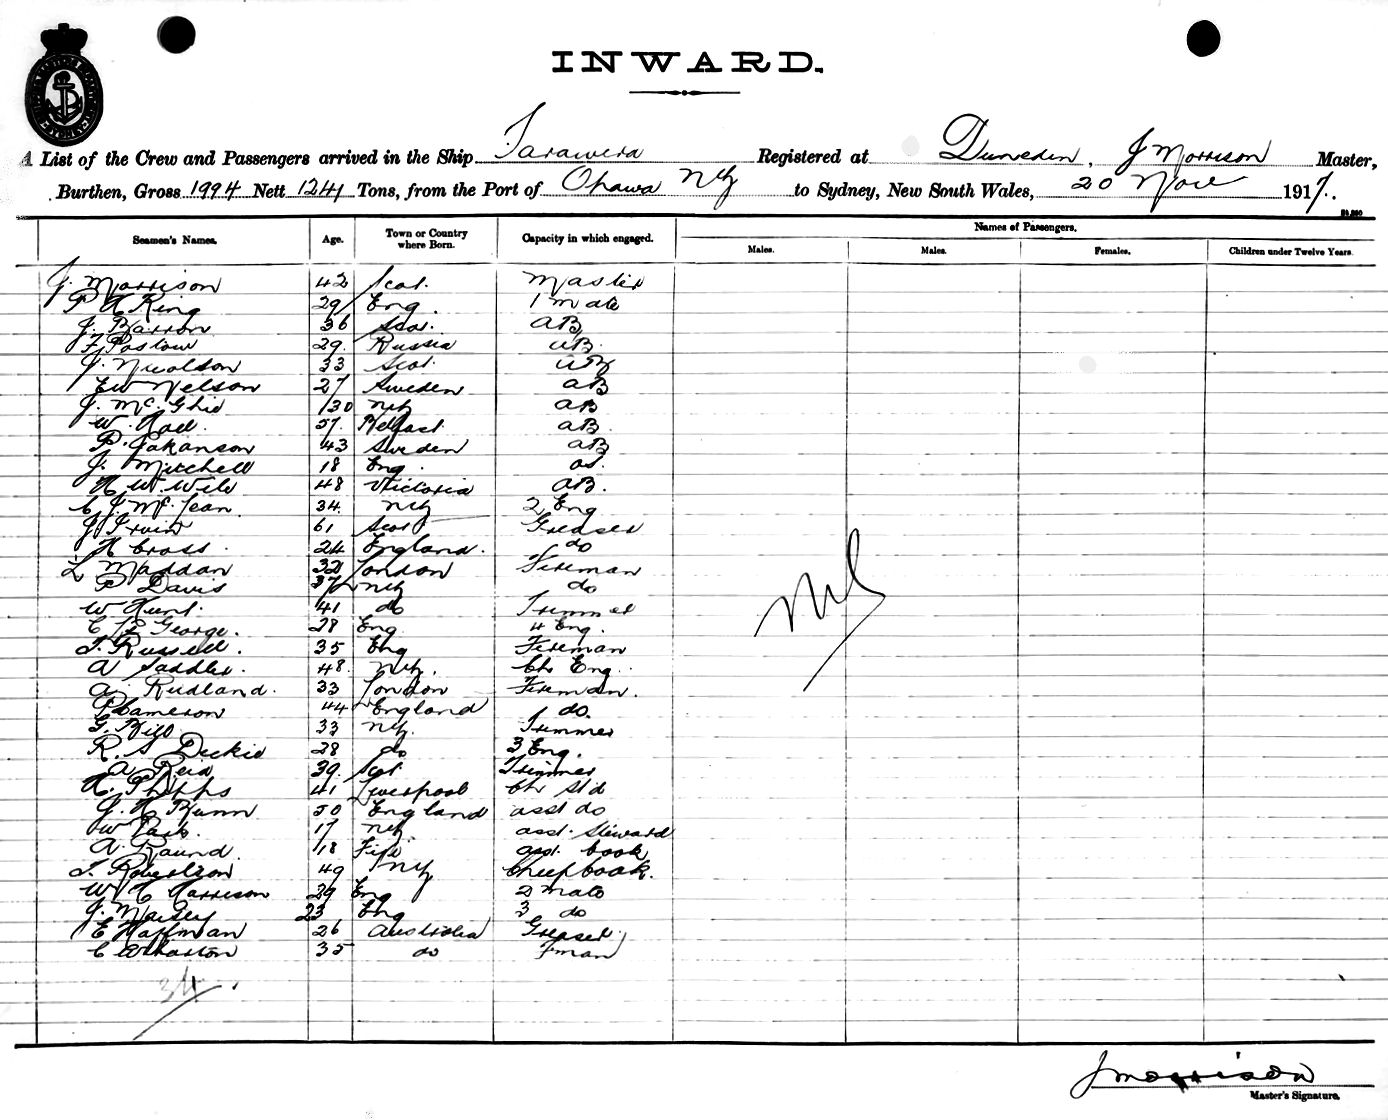 INWARD.
A List of the Crew and Passengers arrived in the Ship Tarawera Registered at Dunedin, J Morrison Master,
Burthen, Gross 1994 Nett 1241 Tons, from the Port of Ohawa NZ to Sydney, New South Wales, 20 Nov 1917.
Names of Passengers.
Seamen's Names. Age. Town or Country where Born. Capacity in which engaged. Males. Males. Females. Children under Twelve Years.
J. Morrison 42 Scot. Master
P H King 29 Eng. 1 mate
J. Barron 36 Scot. AB
F Paslow 29. Russia AB.
J. Nicolson 33 Scot. AB
EW Nelson 27 Sweden AB
J. McGhie 30 NZ AB
W. 57. Belfast AB.
P. Jakanson 43 Sweden AB
J. Mitchell 18 Eng. os.
H. W. Wile 48 Victoria AB.
C J. McLean 34. NZ 2 Eng
J Irvin 61 Scot Greaser
H Cross. 24 England. do
L Maddan 32 London Fireman
P Davis 37 NZ do
W Hunt. 41 do Trimmer
C E George. 28 Eng 4 Eng.
T. Russell. 35 Eng Fireman
A Saddler. 48. NZ. Ch Eng.
A. Rudland. 33 London Fireman.
P Cameron 44 England do.
G. 33 NZ. Trimmer
R. S Dickie 28 do 3 Eng.
A Reid 39. Scot Trimmer
H. Phipps 41 Liverpool Ch Std
J. H Bunn 50 England asst do
W Park. 17 NZ. asst. Steward
A. Raund. 18 Fiji asst. Cook
T. Robertson 49 NZ Chief Cook.
W H Harrison 29 Eng 2 mate
J. Maisey 23 Eng 3 do
E Haffman 26 Australia Greaser
C Wharton 35 do Fman
Nil
34
J Morrison
Master's Signature.